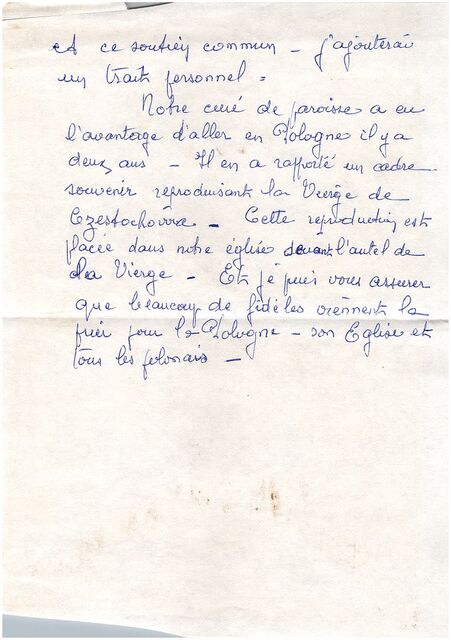 A ce soutien commun - j'ajouterai
un trait personnel =
Notre curé de paroisse a eu
l'avantage d'aller en Pologne il y a
deux ans - Il en a rapporté un cadre
souvenir reproduisant la Vierge de
Czestochova - Cette reproduction est
placée dans notre église devant l'autel de
la Vierge - Et je puis vous assurer
que beaucoup de fidèles viennent la
prier pour la Pologne - son Eglise et
tous les polonais -